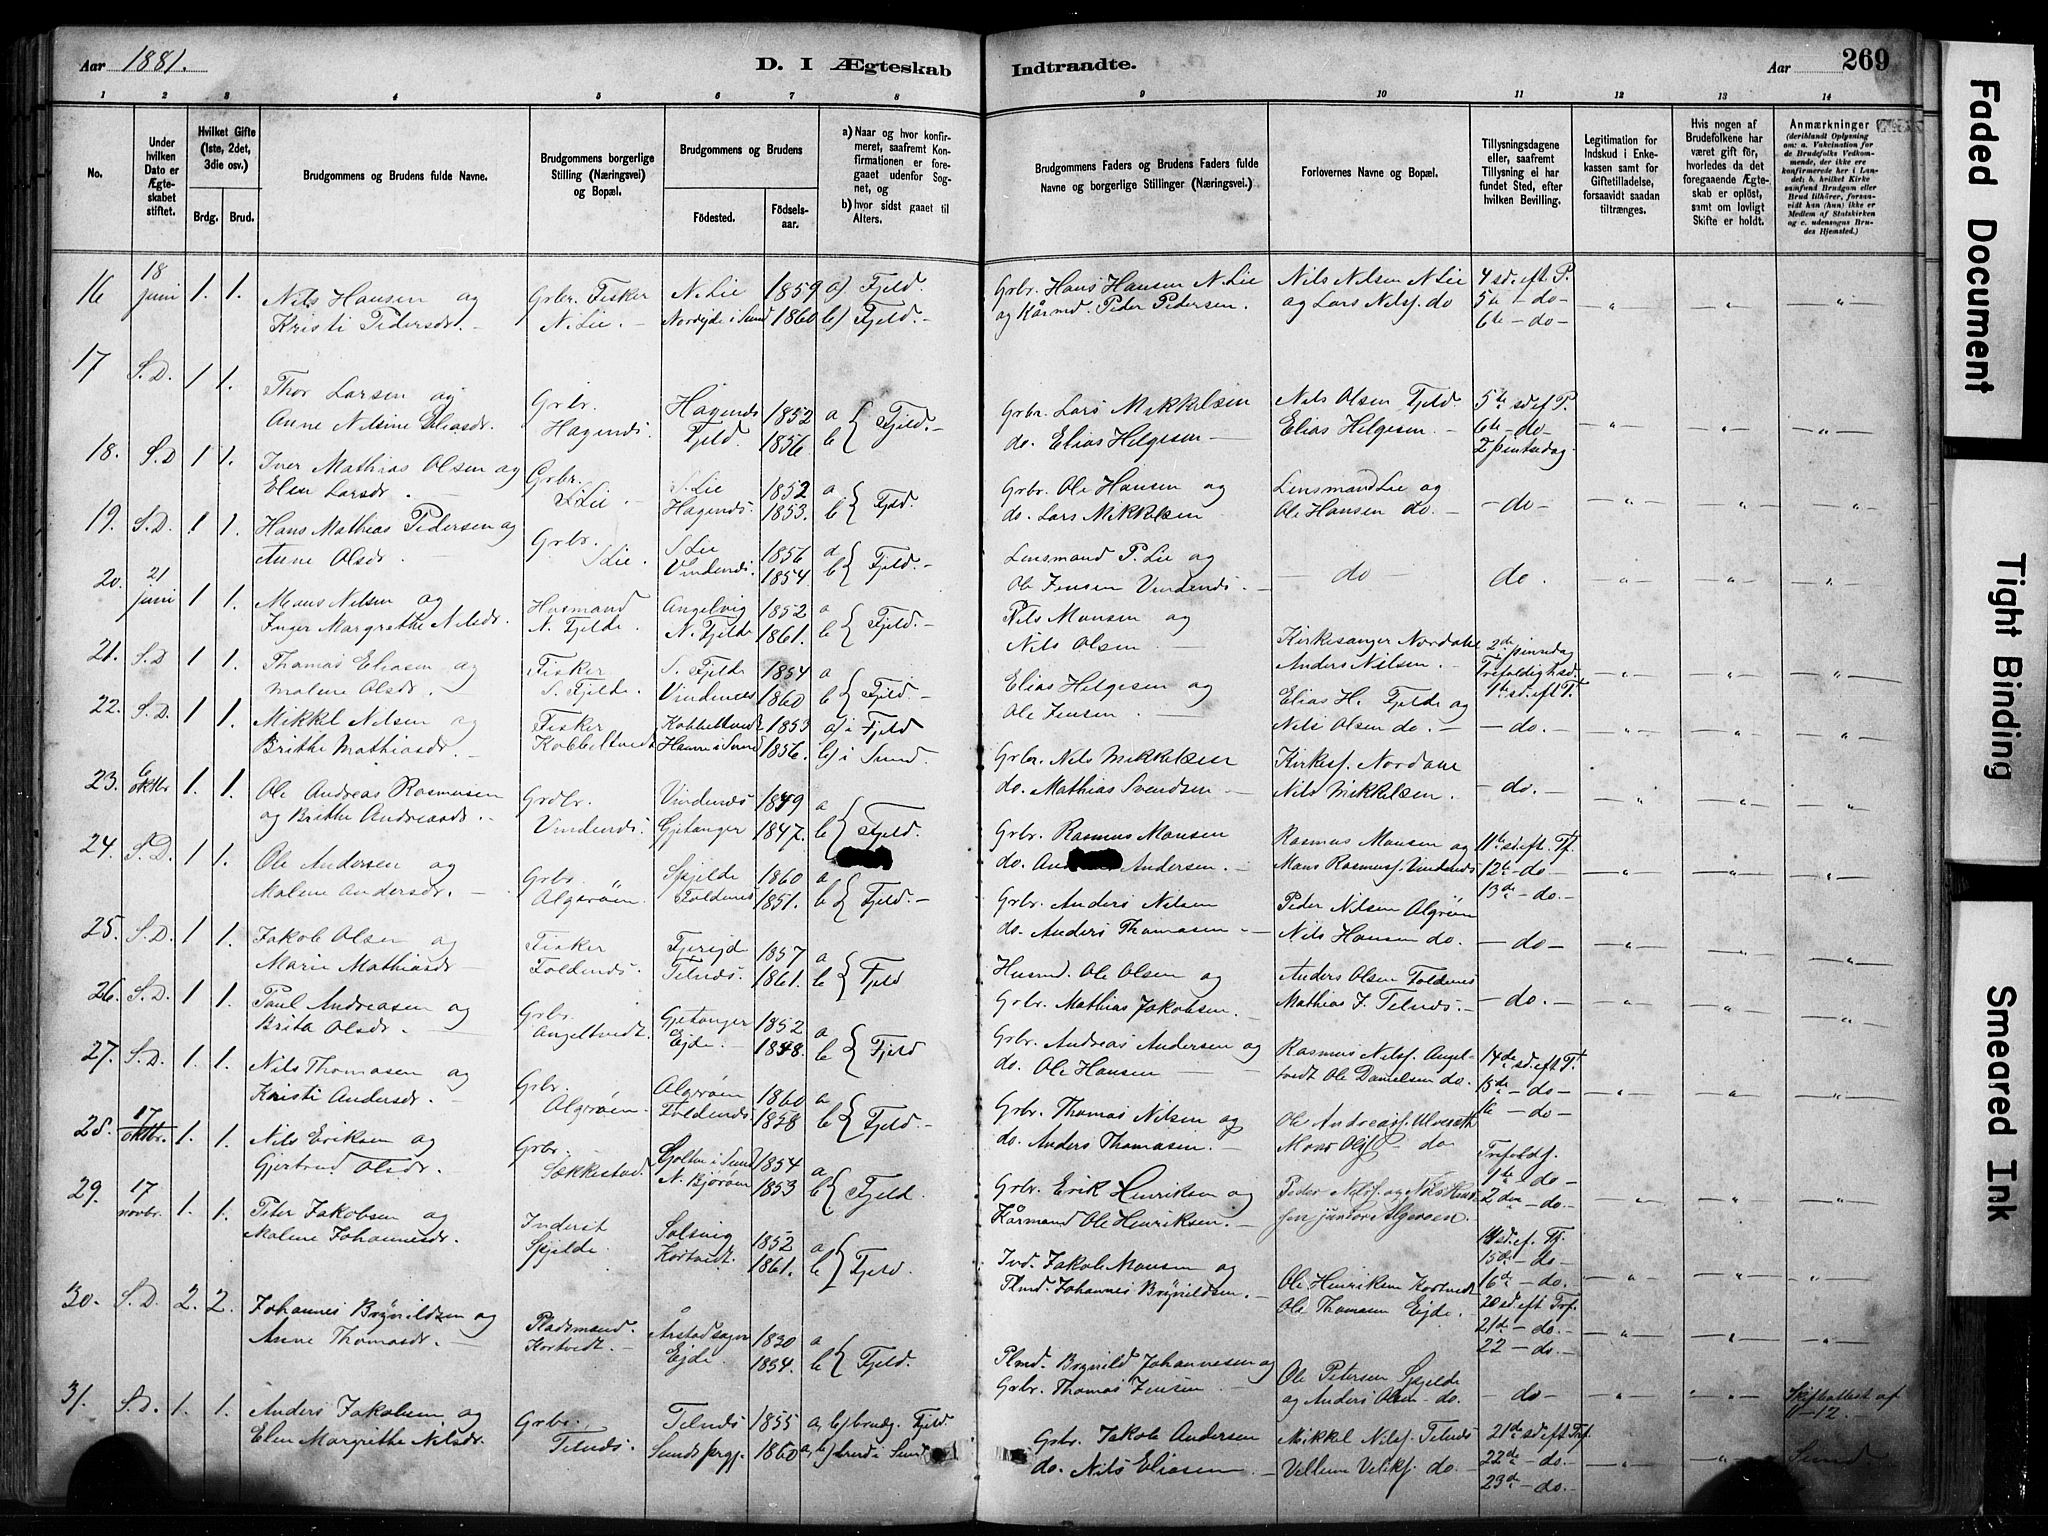 Aar 1881.
D. I Ægteskab
Indtraadte.
Aar
269
1 2 3 4 5 6 7 8 9 10 11 12 13 14
No.
Under hvilken Dato er Ægteskabet stiftet.
Hvilket Gifte (1ste, 2det, 3die osv.)
Brdg. Brud.
Brudgommens og Brudens fulde Navne.
Brudgommens borgerlige Stilling (Næringsvei) og Bopæl.
Brudgommens og Brudens
Fødested.
Fødselsaar.
a) Naar og hvor konfirmeret, saafremt Konfirmationen er foregaaet udenfor Sognet, og
b) hvor sidst gaaet til Alters.
Brudgommens Faders og Brudens Faders fulde Navne og borgerlige Stillinger (Næringsvei.)
Forlovernes Navne og Bopæl.
Tillysningsdagene eller, saafremt Tillysning ei har fundet Sted, efter hvilken Bevilling.
Legitimation for Indskud i Enkekassen samt for Giftetilladelse, forsaavidt saadan tiltrænges.
Hvis nogen af Brudefolkene har været gift før, hvorledes da det foregaaende Ægteskab er opløst, samt om lovligt Skifte er holdt.
Anmærkninger
(deriblandt Oplysning om: a. Vakcination for de Brudefolks Vedkommende, der ikke ere konfirmerede her i Landet; b. hvilket Kirkesamfund Brudgom eller Brud tilhører, forsaavidt han (hun) ikke er Medlem af Statskirken og c. udensogns Brudes Hjemsted.)
16 18 juni 1. 1. Nils Hansen og Grbr. Fisker N. Lie 1859 a) Fjeld. Grbr. Hans Hansen N. Lie Nils Nilsen N Lie 4 sd. eft P.
Kristi Pedersdr. N. Lie. Nordejde i Sund 1860 b) Fjeld. og Kårmd. Peder Pedersen. og Lars Nilsf. do 5te - do -
6te - do -
17 S.D. 1 1. Thor Larsen og Grbr. Hagenæs 1852 a Fjeld. Grbr. Lars Mikkelsen Nils Olsen Fjeld 5te sd. ef P.
Anne Nilsine Eliasdr. Hagenæs. Fjeld. 1856 b do. Elias Helgesen Elias Helgesen. 6te - do
2 pintsedag.
18. S.D 1 1. Iver Mathias Olsen og Grbr. S. Lie 1852 a Fjeld. Grbr. Ole Hansen og Lensmand Lie og - do -
Elen Larsdr. S. Lie. Hagenæs. 1853. b do. Lars Mikkelsen Ole Hansen do.
19. S.D. 1 1. Hans Mathias Pedersen og Grbr. S. Lie 1856 a Fjeld. Lensmand P. Lie og - do - do.
Anne Olsdr. S Lie. Vindenæs. 1854 b Ole Jensen Vindenæs.
20. 21 juni 1 1. Mons Nilsen og Husmand Angelvig 1852. a Fjeld. Nils Monsen og Kirkesanger Nordahl 2de pinsedag
Inger Margrethe Nilsdr. N. Fjelde. N. Fjelde 1861. b Nils Olsen Anders Nilsen. Trefoldighsd.
1te sd. eft T.
21. S.D 1 1. Thomas Eliasen og Fisker S. Fjelde 1854 a Fjeld. Elias Helgesen og Elias H. Fjelde og - do.
Malene Olsdr. S. Fjelde. Vindenæs 1860 b Ole Jensen. Nils Olsen do.
22. S.D. 1 1. Mikkel Nilsen og Fisker Kobbeltvedt 1853 a) i Fjeld Grbr. Nils Mikkelsen Kirkes. Nordahl - do.
Brithe Mathiasdr. Kobbeltvedt Hamre i Sund 1856. b) i Sund. do. Mathias Svendsen Nils Mikkelsen.
23. 6 oktbr 1. 1. Ole Andreas Rasmusen Grdbr. Vindenæs 1849 a Fjeld. Grbr. Rasmus Monsen Rasmus Monsen og 11te sd. eft. Tf.
og Brithe Andreasdr. Vindenæs. Gjetanger 1847. b do. Andersen. Mons Rasmusf. Vindenæs 12te - do
13de - do.
24. S.D. 1 1. Ole Andersen og Grbr. Spjelde 1860 a Fjeld. Grbr. Anders Nilsen Peder Nilsen Algrøen - do -
Malene Andersdr. Algrøen. Foldenæs 1851. b do. Anders Thomasen Nils Hansen do.
25. S.D. 1 1. Jakob Olsen og Fisker Fjerejde 1857 a Fjeld Husmd. Ole Olsen og Anders Olsen Foldenæs - do.
Marie Mathiasdr. Foldenæs. Telnæs. 1861. b Grbr. Mathias Jakobsen. Mathias J. Telnæs.
26. S.D. 1 1. Paul Andreasen og Grbr. Gjetanger 1852 a Fjeld Grbr. Andreas Andersen og Rasmus Nilsf. Angel- 14de sd. eft T.
Brita Olsdr. Angeltvedt. Ejde. 1848. b do. Ole Hansen tvedt Ole Danielsen do. 15de - do -
16 - do -
27. S.D. 1. 1. Nils Thomasen og Grbr. Algrøen 1860 a Fjeld. Grbr. Thomas Nilsen og Ole Andreasf. Ulveseth Trefoldf.
Kristi Andersdr. Algrøen. Foldenæs. 1858 b do. Anders Thomasen. Mons Olsf do 1te - do
2den - do.
28. 17 oktbr. 1. 1. Nils Eriksen og Grbr. Golten i Sund 1854 a Fjeld. Grbr. Erik Henriksen og Peder Nilsf. og Nils Han-
Gjertrud Olsdr. Sekkestad. N. Bjørøen 1853 b Kårmand Ole Henriksen. sen junior Algerøen.
29. 17 novbr. 1. 1. Peter Jakobsen og Inderst Solsvig 1852 a Fjeld. Ind. Jakob Monsen og Ole Henriksen Kortvedt 14 sd. ef. Tf.
Malene Johannesdr. Spjelde. Kortvedt. 1861. b Plmd. Johannes Brynildsen. Ole Thomasen Ejde. 15de - do
16de - do.
30. S.D. 2. 2. Johannes Brynildsen og Pladsmand. Årstadsogn 1830 a Fjeld. Plmd. Brynild Johannesen og Ole Petersen Spjelde 20 sd. eft Trf.
Anne Thomasdr. Kortvedt. Ejde. 1854. b Grbr. Thomas Jensen og Anders Olsen do. 21de - do.
22 - do.
Skifteattest af 11-12.
31. S.D. 1. 1. Anders Jakobsen og Grbr. Telnæs 1855 a, b) brudg. Fjeld. Grbr. Jakob Andersen Mikkel Nilsf. Telnæs 21de sd eft Trf.
Elen Margrethe Nilsdr. Telnæs. Sunds prgj. 1860 a, b) brud i Sund do. Nils Eliasen Vellum do. 22de - do.
23de - do.
Sund
Faded Document
Tight Binding
Smeared Ink